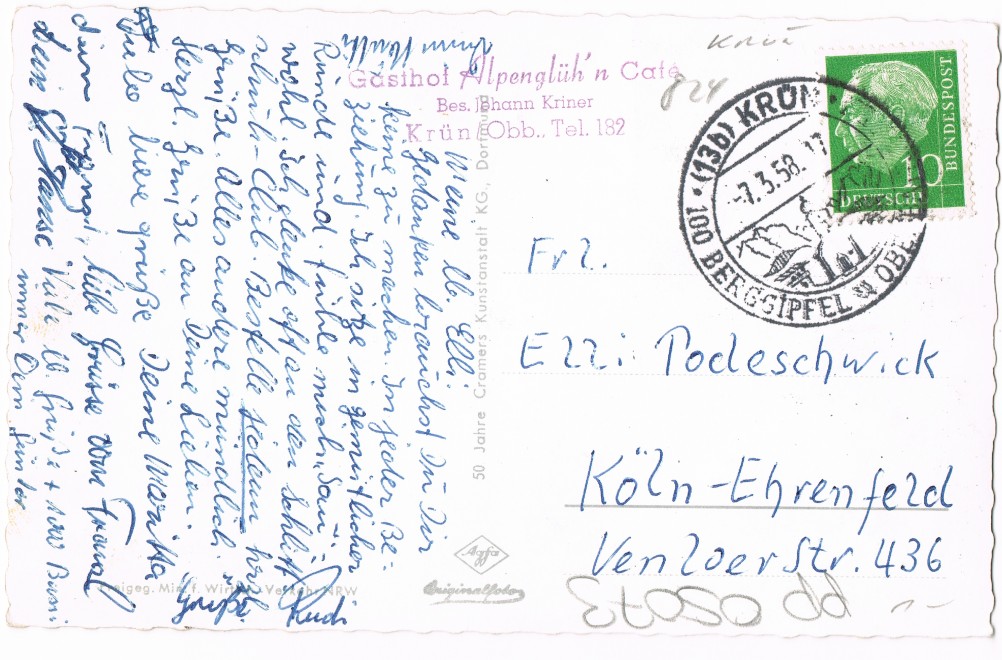 Meine lb. Elli.
Gedanken brauchst Du Dir
keine zu machen. In jeder Be-
ziehung. Ich sitze in gemütlicher
Runde und fühle mich "Sau-
wohl. Ich denke oft an den Schliff
Club. Bestelle jedem herzl.
Grüße. Alles andere mündlich.
Herzl. Grüße an Deine Lieben.
viele liebe Grüße Deine Maritta
liebe Grüsse von
Viele lb. Grüße + 1000 Bussi
immer Dein Günter
Grüße Rudi
Gasthof Alpenglüh'n Café
Bes. Johann Kriner
Krün/Obb., Tel. 182
50 Jahre Cramers Kunstanstalt KG, Dortmund
Agfa
Originalfoto
Freigeg. Min. f. Wirtsch. u. Verkehr NRW
Krün
824
(13b) KRÜN
-7.3.58.-17
100 BERGGIPFEL
10
DEUTSCHE
BUNDESPOST
Frl.
Elli Podeschwick
Köln-Ehrenfeld
Venloerstr. 436